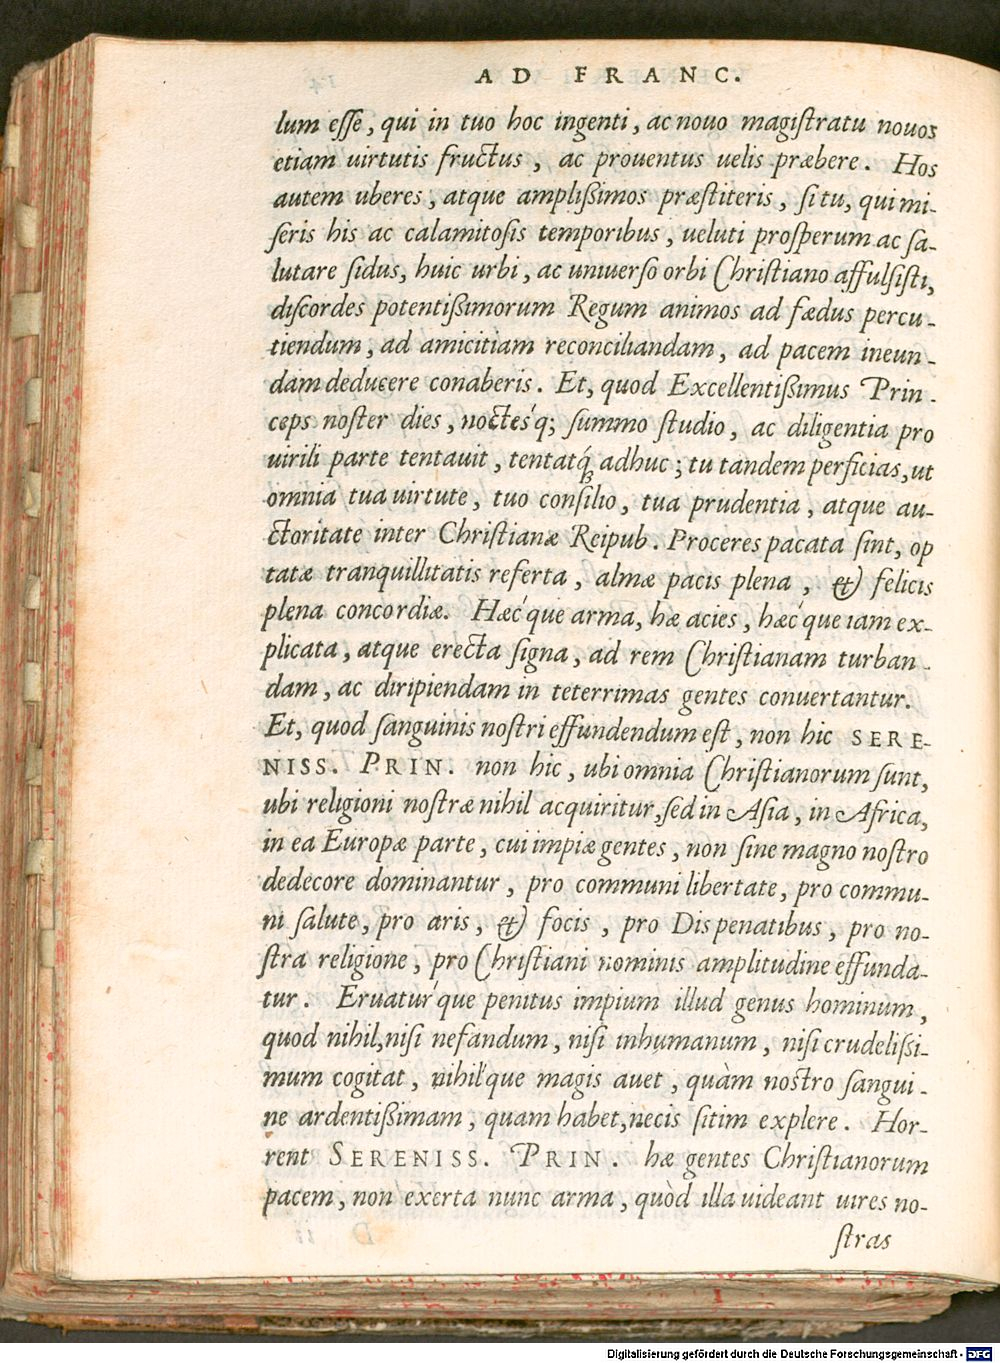 AD FRANC.
lum esse, qui in tuo hoc ingenti, ac nouo magistratu nouos
etiam uirtutis fructus, ac prouentus uelis præbere. Hos
autem uberes, atque amplißimos præstiteris, si tu, qui mi-
seris his ac calamitosis temporibus, ueluti prosperum ac sa-
lutare sidus, huic urbi, ac uniuerso orbi Christiano affulsisti,
discordes potentißimorum Regum animos ad fœdus percu-
tiendum, ad amicitiam reconciliandam, ad pacem ineun-
dam deducere conaberis. Et, quod Excellentißimus Prin-
ceps noster dies, noctes'q; summo studio, ac diligentia pro
uirili parte tentauit, tentatq́; adhuc; tu tandem perficias, ut
omnia tua uirtute, tuo consilio, tua prudentia, atque au-
ctoritate inter Christianæ Reipub. Proceres pacata sint, op
tatæ tranquillitatis referta, almæ pacis plena, & felicis
plena concordiæ. Hæc'que arma, hæ acies, hæc'que iam ex-
plicata, atque erecta signa, ad rem Christianam turban-
dam, ac diripiendam in teterrimas gentes conuertantur.
Et, quod sanguinis nostri effundendum est, non hic SERE-
NISS. PRIN. non hic, ubi omnia Christianorum sunt,
ubi religioni nostræ nihil acquiritur, sed in Asia, in Africa,
in ea Europæ parte, cui impiæ gentes, non sine magno nostro
dedecore dominantur, pro communi libertate, pro commu-
ni salute, pro aris, & focis, pro Dis penatibus, pro no-
stra religione, pro Christiani nominis amplitudine effunda-
tur. Eruatur'que penitus impium illud genus hominum,
quod nihil, nisi nefandum, nisi inhumanum, nisi crudelißi-
mum cogitat, nihil'que magis auet, quàm nostro sangui-
ne ardentißimam, quam habet, necis sitim explere. Hor-
rent SERENISS. PRIN. hæ gentes Christianorum
pacem, non exerta nunc arma, quòd illa uideant uires no-
stras
Digitalisierung gefördert durch die Deutsche Forschungsgemeinschaft - DFG